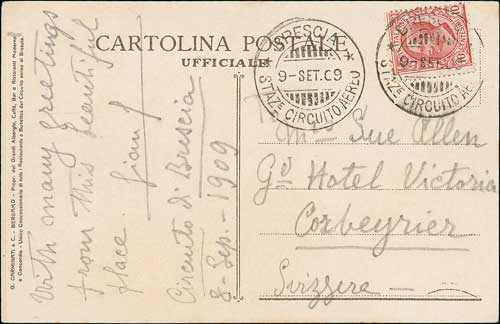 CARTOLINA POSTALE
UFFICIALE
BRESCIA
9-SET.09
STAZE CIRCUITO AEREO
9-SET
STAZE CIRCUITO AE
With many greetings
from this beautiful
place
Circuito di Brescia
8-Sep.-1909
Sue Allen
Gd Hotel Victoria
Corbeyrier
Svizzera
G. CARMINATI e C. - BERGAMO - Propr. dei Grandi Alberghi, Caffè, Bar e Ristoranti Moderne
e Concordia - Unico Concessionario di tutti i Restaurants e Buffettes del Circuito aereo di Brescia.